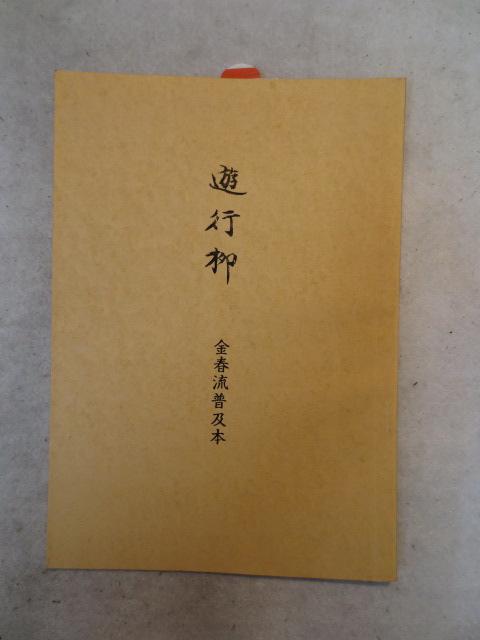 遊行柳
金春流普及本